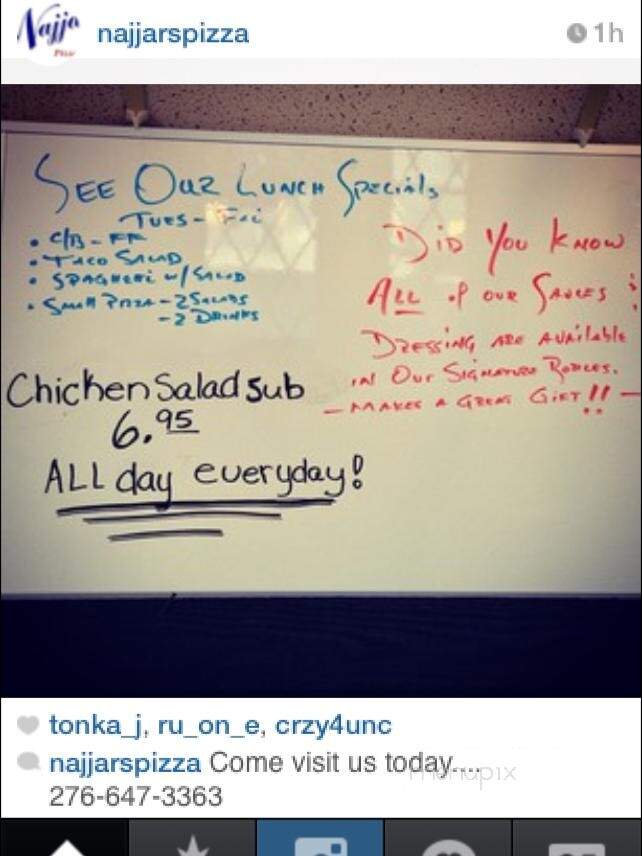 Najja
Pizza
najjarspizza
1h
SEE OUR LUNCH SPECIALS
TUES - Fri
• C/B - FF
• TACO SALAD
• SPAGHETTI w/SALAD
• SMALL PIZZA - 2 SALADS
- 2 DRINKS
DID YOU KNOW
ALL of our SAUCES &
DRESSING ARE AVAILABLE
IN OUR SIGNATURE BOTTLES.
- MAKES A GREAT GIFT!! -
Chicken Salad Sub
6.95
ALL day everyday!
tonka_j, ru_on_e, crzy4unc
najjarspizza Come visit us today....
276-647-3363
menupix